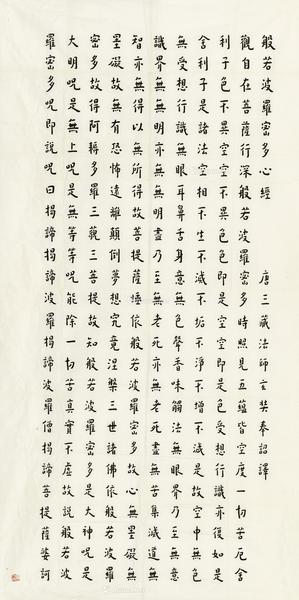 般若波羅密多心經　唐三藏法師玄奘奉詔譯
觀自在菩薩行深般若波羅密多時照見五蘊皆空度一切苦厄舍
利子色不異空空不異色色即是空空即是色受想行識亦復如是
舍利子是諸法空相不生不滅不垢不淨不增不減是故空中無色
無受想行識無眼耳鼻舌身意無色聲香味觸法無眼界乃至無意
識界無無明亦無無明盡乃至無老死亦無老死盡無苦集滅道無
智亦無得以無所得故菩提薩埵依般若波羅密多故心無罣礙無
罣礙故無有恐怖遠離顛倒夢想究竟涅槃三世諸佛依般若波羅
密多故得阿耨多羅三藐三菩提故知般若波羅密多是大神呪是
大明呪是無上呪是無等等呪能除一切苦真實不虛故說般若波
羅密多呪即說呪曰揭諦揭諦波羅揭諦波羅僧揭諦菩提薩婆訶